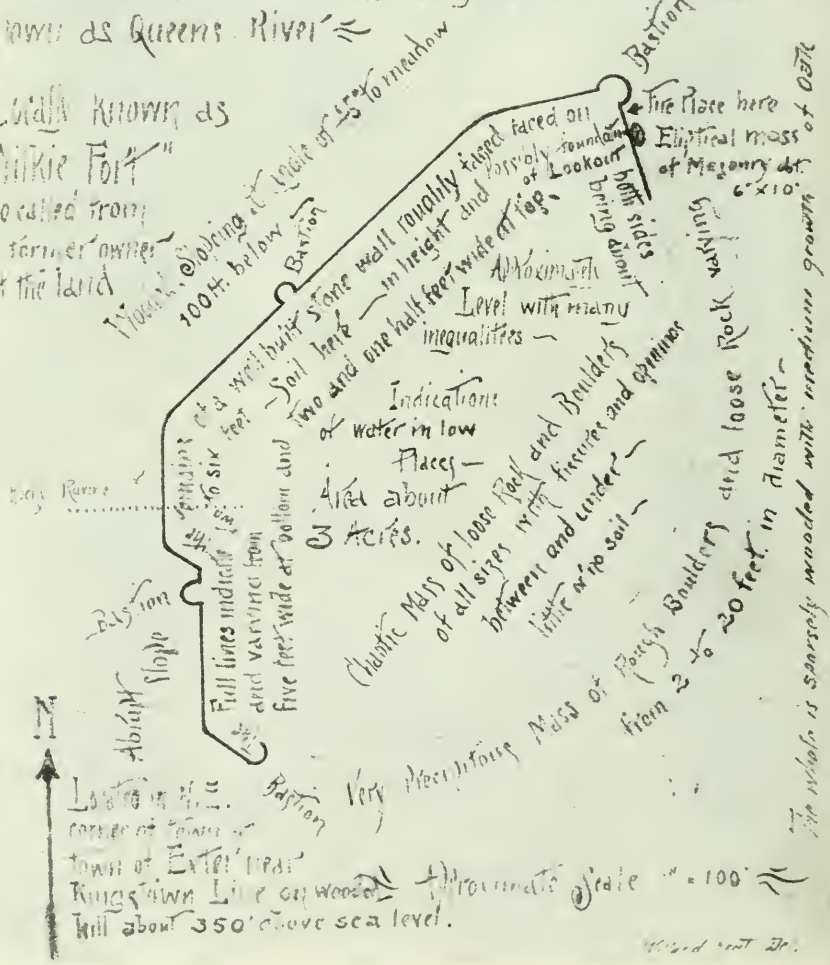 as Queens River
Known as
Fort"
called from
former owner
the land
Sloping at to meadow
100 ft. below
Bastion
Bastion
Fire Place here
Eliptical mass
of Masonry abt.
6' x 10'
Possibly foundat
of Lookout
Full lines indicate remains of a well built stone wall roughly faced on both sides
being about two to six feet in height and
and varying from
five feet wide at bottom and two and one half feet wide at top.
Soil here
Aproximately
Level with many
inequalitees
Indications
of water in low
Places
Area about
3 Acres.
Chaotic Mass of loose Rock and Boulders
of all sizes with fissures and openings
between and under
little or no soil
Very Precipitous Mass of Rough Boulders and loose Rock varying
from 2 to 20 feet. in diameter
The whole is sparsely wooded with medium growth of Oak
Ravine
Bastion
Abrupt
Slope
Bastion
N
Located in N.E.
corner of
town of Exter near
Kingstown Line on wooded
hill about 350' above sea level.
Aproximate Scale 1" = 100'